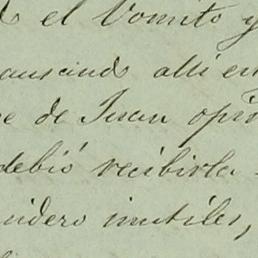 el Vomito y
allí en
de Juan opi
debió recibirla
sidero inutiles,